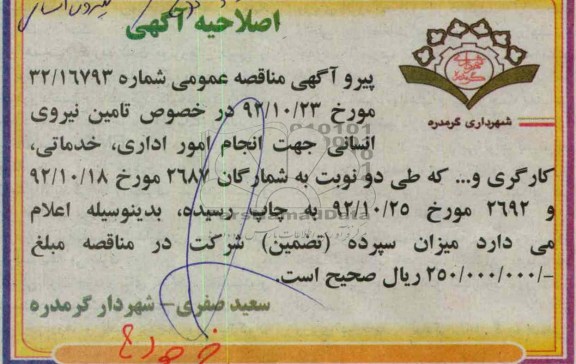 اصلاحیه آگهی
شهرداری گرمدره
پیرو آگهی مناقصه عمومی شماره ۳۲/۱۶۷۹۳
مورخ ۹۲/۱۰/۲۳ در خصوص تامین نیروی
انسانی جهت انجام امور اداری، خدماتی،
کارگری و... که طی دو نوبت به شمارگان ۲۶۸۷ مورخ ۹۲/۱۰/۱۸
و ۲۶۹۲ مورخ ۹۲/۱۰/۲۵ به چاپ رسیده، بدینوسیله اعلام
می دارد میزان سپرده (تضمین) شرکت در مناقصه مبلغ
۲۵۰/۰۰۰/۰۰۰/- ریال صحیح است.
سعید صفری – شهردار گرمدره